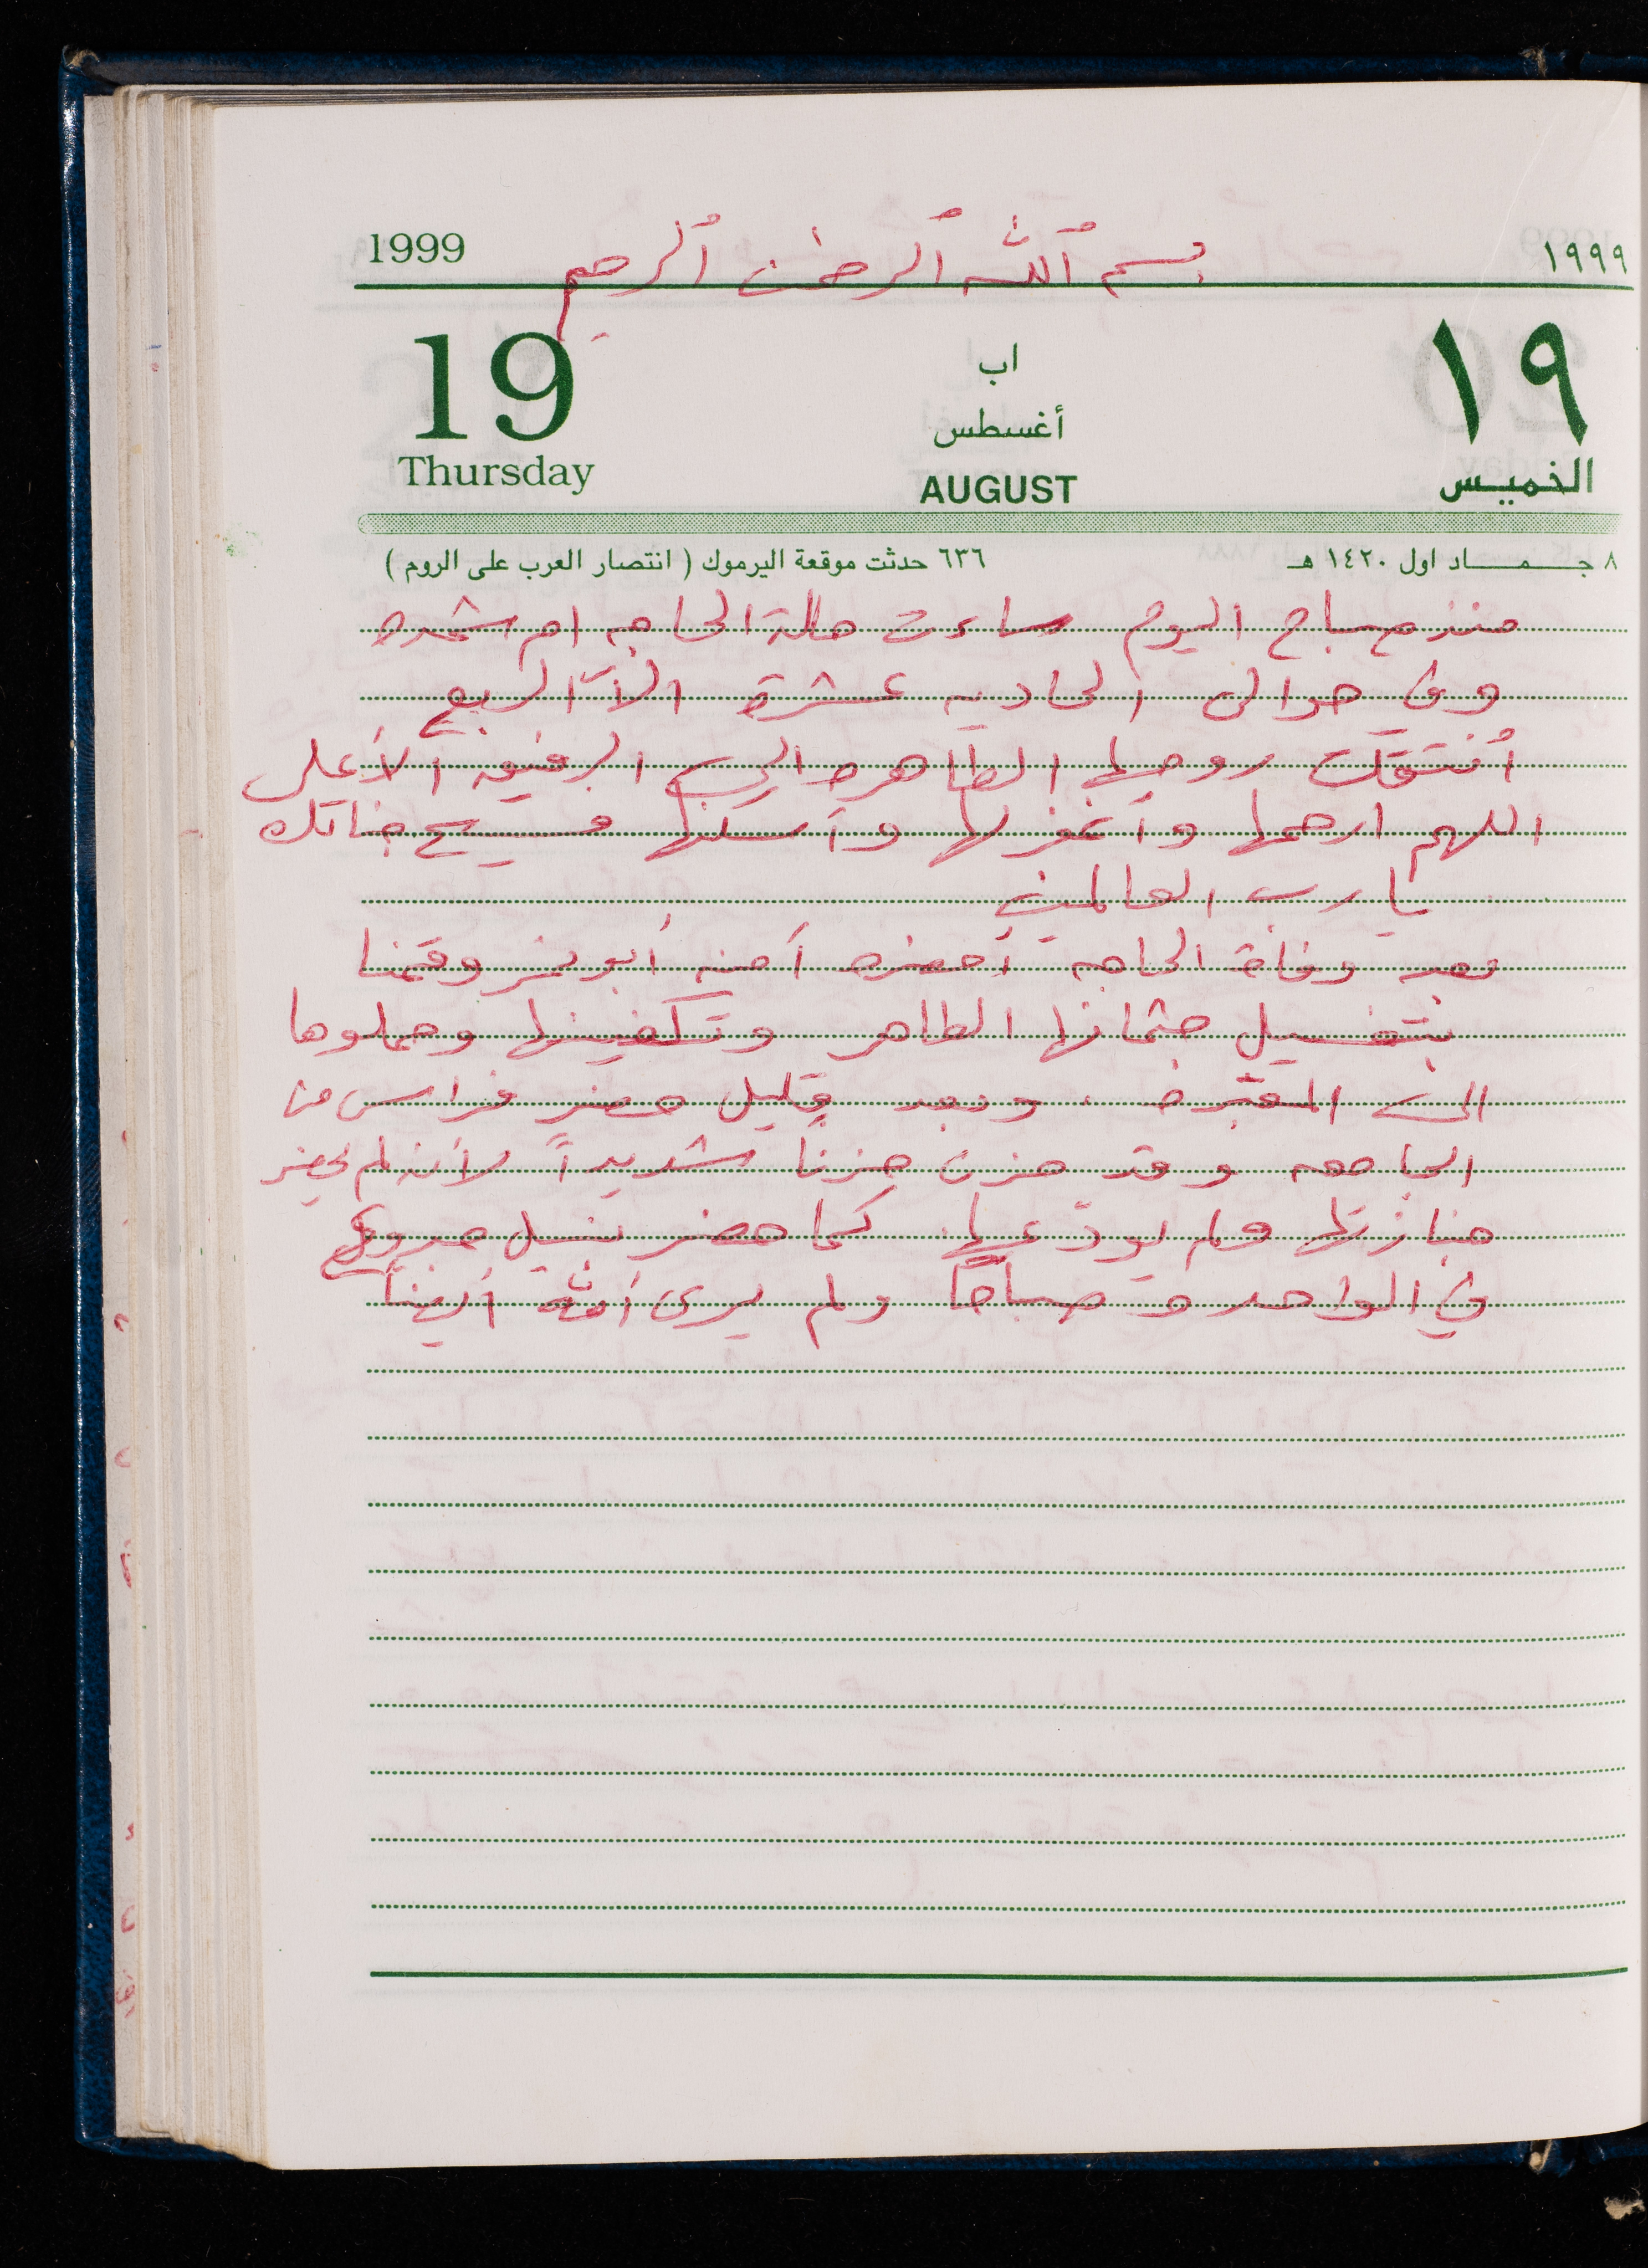 1999 بسم الله الرحمن الرحيم ١٩٩٩
19 اب ١٩
أغسطس
Thursday AUGUST الخميس
٨ جمـــاد اول ١٤٢٠ هـ ٦٣٦ حدثت موقعة اليرموك ( انتصار العرب على الروم )
منذ صباح اليوم ساءت حالة الحاجه ام شحده
وفي حوالى الحاديه عشرة الآ الربع
أنتقلت روحها الطاهره الى الرفيق الأعلى
اللهم ارحمها وأغفر لها وأسكنها فسيح جناتك
يا رب العالمين
بعد وفاة الحاجه أحضره أمنه أبو نمر وقمنا
بتغسيل جثمانها الطاهر وتكفينها وحملوها
الى المقبره . وبعد قليل حضر فراس من
الجامعه وقد حزن حزنا شديداً لأنه لم يحضر
جنازتها ولم يودعها. كما حضر نبيل
في الواحده صباحاً ولم يرى أمه أيضاً